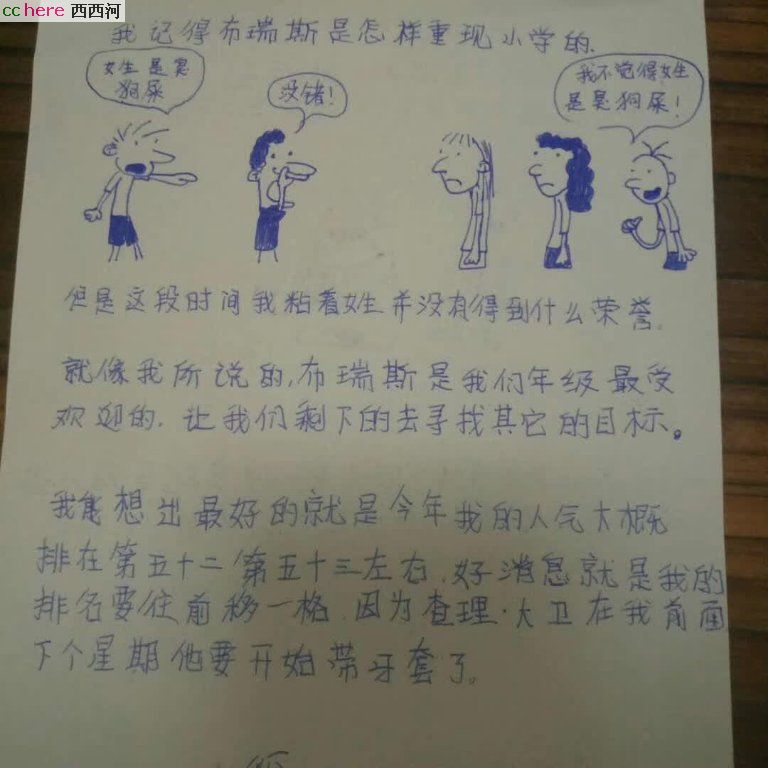 cchere 西西河
我记得布瑞斯是怎样重现小学的.
女生是臭
狗屎
没错!
我不觉得女生
是臭狗屎!
但是这段时间我粘着女生并没有得到什么荣誉.
就像我所说的,布瑞斯是我们年级最受
欢迎的.让我们剩下的去寻找其它的目标。
我能想出最好的就是今年我的人气大概
排在第五十二/第五十三左右.好消息就是我的
排名要往前移一格.因为查理·大卫在我前面
下个星期他要开始带牙套了。